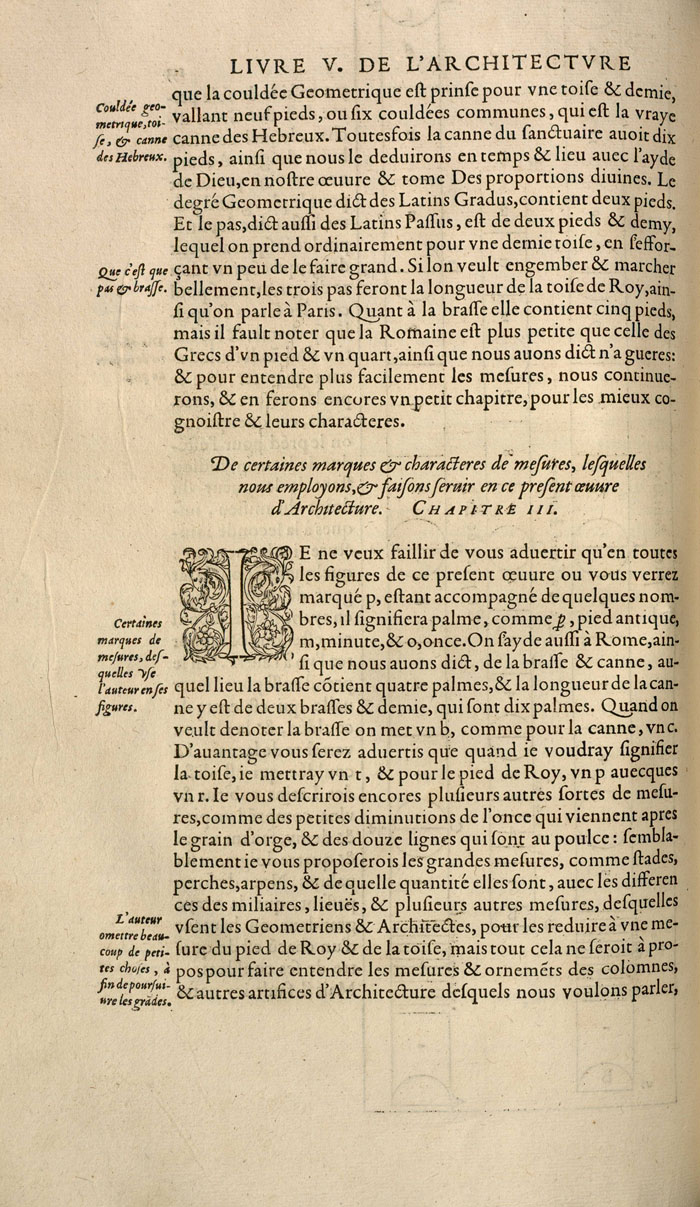 LIVRE V. DE L'ARCHITECTVRE
que la couldée Geometrique eſt prinſe pour vne toiſe & demie,
vallant neuf pieds, ou ſix couldées communes, qui eſt la vraye
canne des Hebreux. Toutesfois la canne du ſanctuaire auoit dix
pieds, ainſi que nous le deduirons en temps & lieu auec l'ayde
de Dieu, en noſtre œuure & tome Des proportions diuines. Le
degré Geometrique dict des Latins Gradus, contient deux pieds.
Et le pas, dict auſſi des Latins Paſſus, eſt de deux pieds & demy,
lequel on prend ordinairement pour vne demie toiſe, en ſeffor-
çant vn peu de le faire grand. Si lon veult engember & marcher
bellement, les trois pas feront la longueur de la toiſe de Roy, ain-
ſi qu'on parle à Paris. Quant à la braſſe elle contient cinq pieds,
mais il fault noter que la Romaine eſt plus petite que celle des
Grecs d'vn pied & vn quart, ainſi que nous auons dict n'a gueres:
& pour entendre plus facilement les meſures, nous continue-
rons, & en ferons encores vn petit chapitre, pour les mieux co-
gnoiſtre & leurs characteres.
Couldée geo-
metrique, toi-
ſe, & canne
des Hebreux.
Que c'eſt que
pas & braſſe.
De certaines marques & characteres de meſures, leſquelles
nous employons, & faiſons ſeruir en ce preſent œuure
d'Architecture. CHAPITRE III.
IE ne veux faillir de vous aduertir qu'en toutes
les figures de ce preſent œuure ou vous verrez
marqué p, eſtant accompagné de quelques nom-
bres, il ſignifiera palme, comme ꝑ, pied antique,
m, minute, & o, once. On ſayde auſſi à Rome, ain-
ſi que nous auons dict, de la braſſe & canne, au-
quel lieu la braſſe cõtient quatre palmes, & la longueur de la can-
ne y eſt de deux braſſes & demie, qui ſont dix palmes. Quand on
veult denoter la braſſe on met vn b, comme pour la canne, vn c.
D'auantage vous ſerez aduertis que quand ie voudray ſignifier
la toiſe, ie mettray vn t, & pour le pied de Roy, vn p auecques
vn r. Ie vous deſcrirois encores pluſieurs autres ſortes de meſu-
res, comme des petites diminutions de l'once qui viennent apres
le grain d'orge, & des douze lignes qui ſont au poulce: ſembla-
blement ie vous propoſerois les grandes meſures, comme ſtades,
perches, arpens, & de quelle quantité elles ſont, auec les differen
ces des miliaires, lieuës, & pluſieurs autres meſures, deſquelles
vſent les Geometriens & Architectes, pour les reduire à vne me-
ſure du pied de Roy & de la toiſe, mais tout cela ne ſeroit à pro-
pos pour faire entendre les meſures & ornemẽts des colomnes,
& autres artifices d'Architecture deſquels nous voulons parler,
Certaines
marques de
meſures, deſ-
quelles vſe
l'auteur en ſes
figures.
L'auteur
omettre beau-
coup de peti-
tes choſes, à
fin de pourſui-
ure les grãdes.